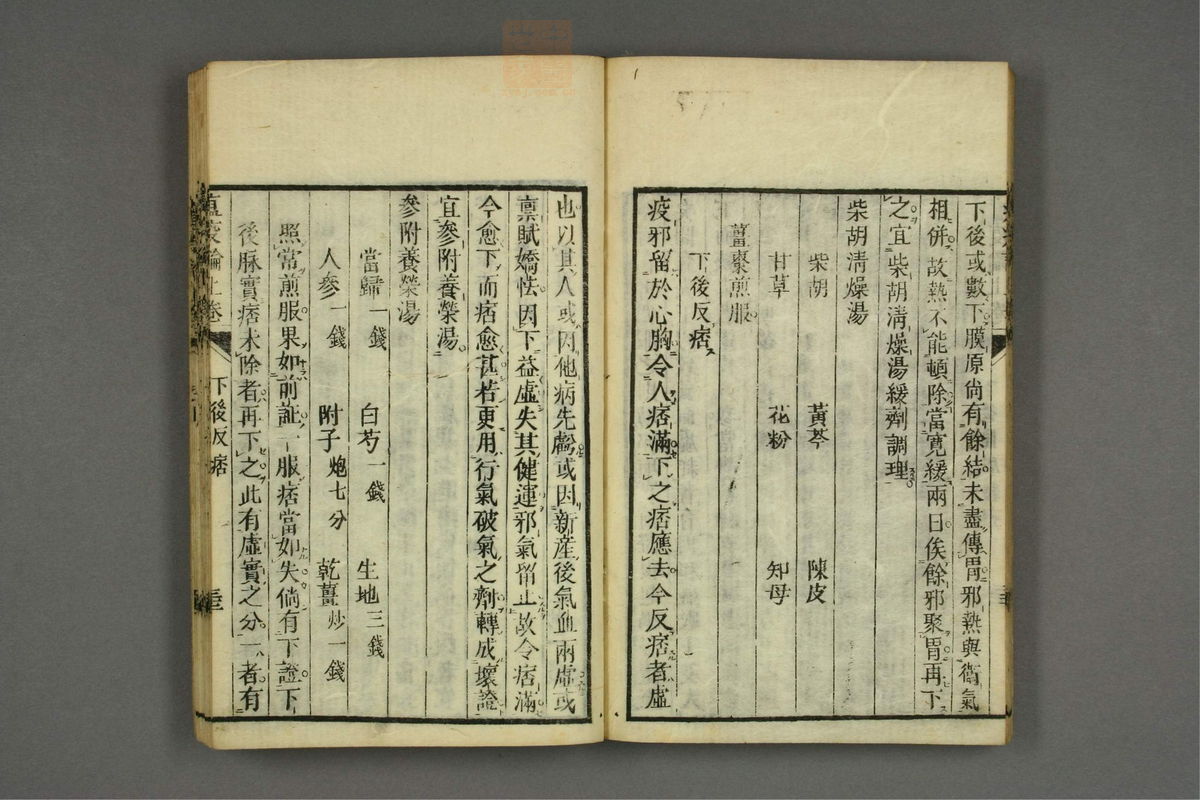 下後或數下膜原尚有餘結未盡傳胃邪熱與衞氣
相併故熱不能頓除當寛緩兩日俟餘邪聚胃再下
之宜柴胡淸燥湯緩劑調理
柴胡淸燥湯
柴胡 黃芩 陳皮
甘草 花粉 知母
薑棗煎服
下後反痞
疫邪留於心胸令人痞滿下之痞應去今反痞者虛
也以其人或因他病先虧或因新産後氣血兩虛或
禀賦嬌怯因下益虛失其健運邪氣留止故令痞滿
今愈下而痞愈甚若更用行氣破氣之劑轉成壞證
宜參附養榮湯
參附養榮湯
當歸一錢 白芍一錢 生地三錢
人參一錢 附子炮七分 乾薑炒一錢
照常煎服果如前証一服痞當如失倘有下證下
後脉實痞未除者再下之此有虛實之分一者有
瘟疫論上卷 下後反痞